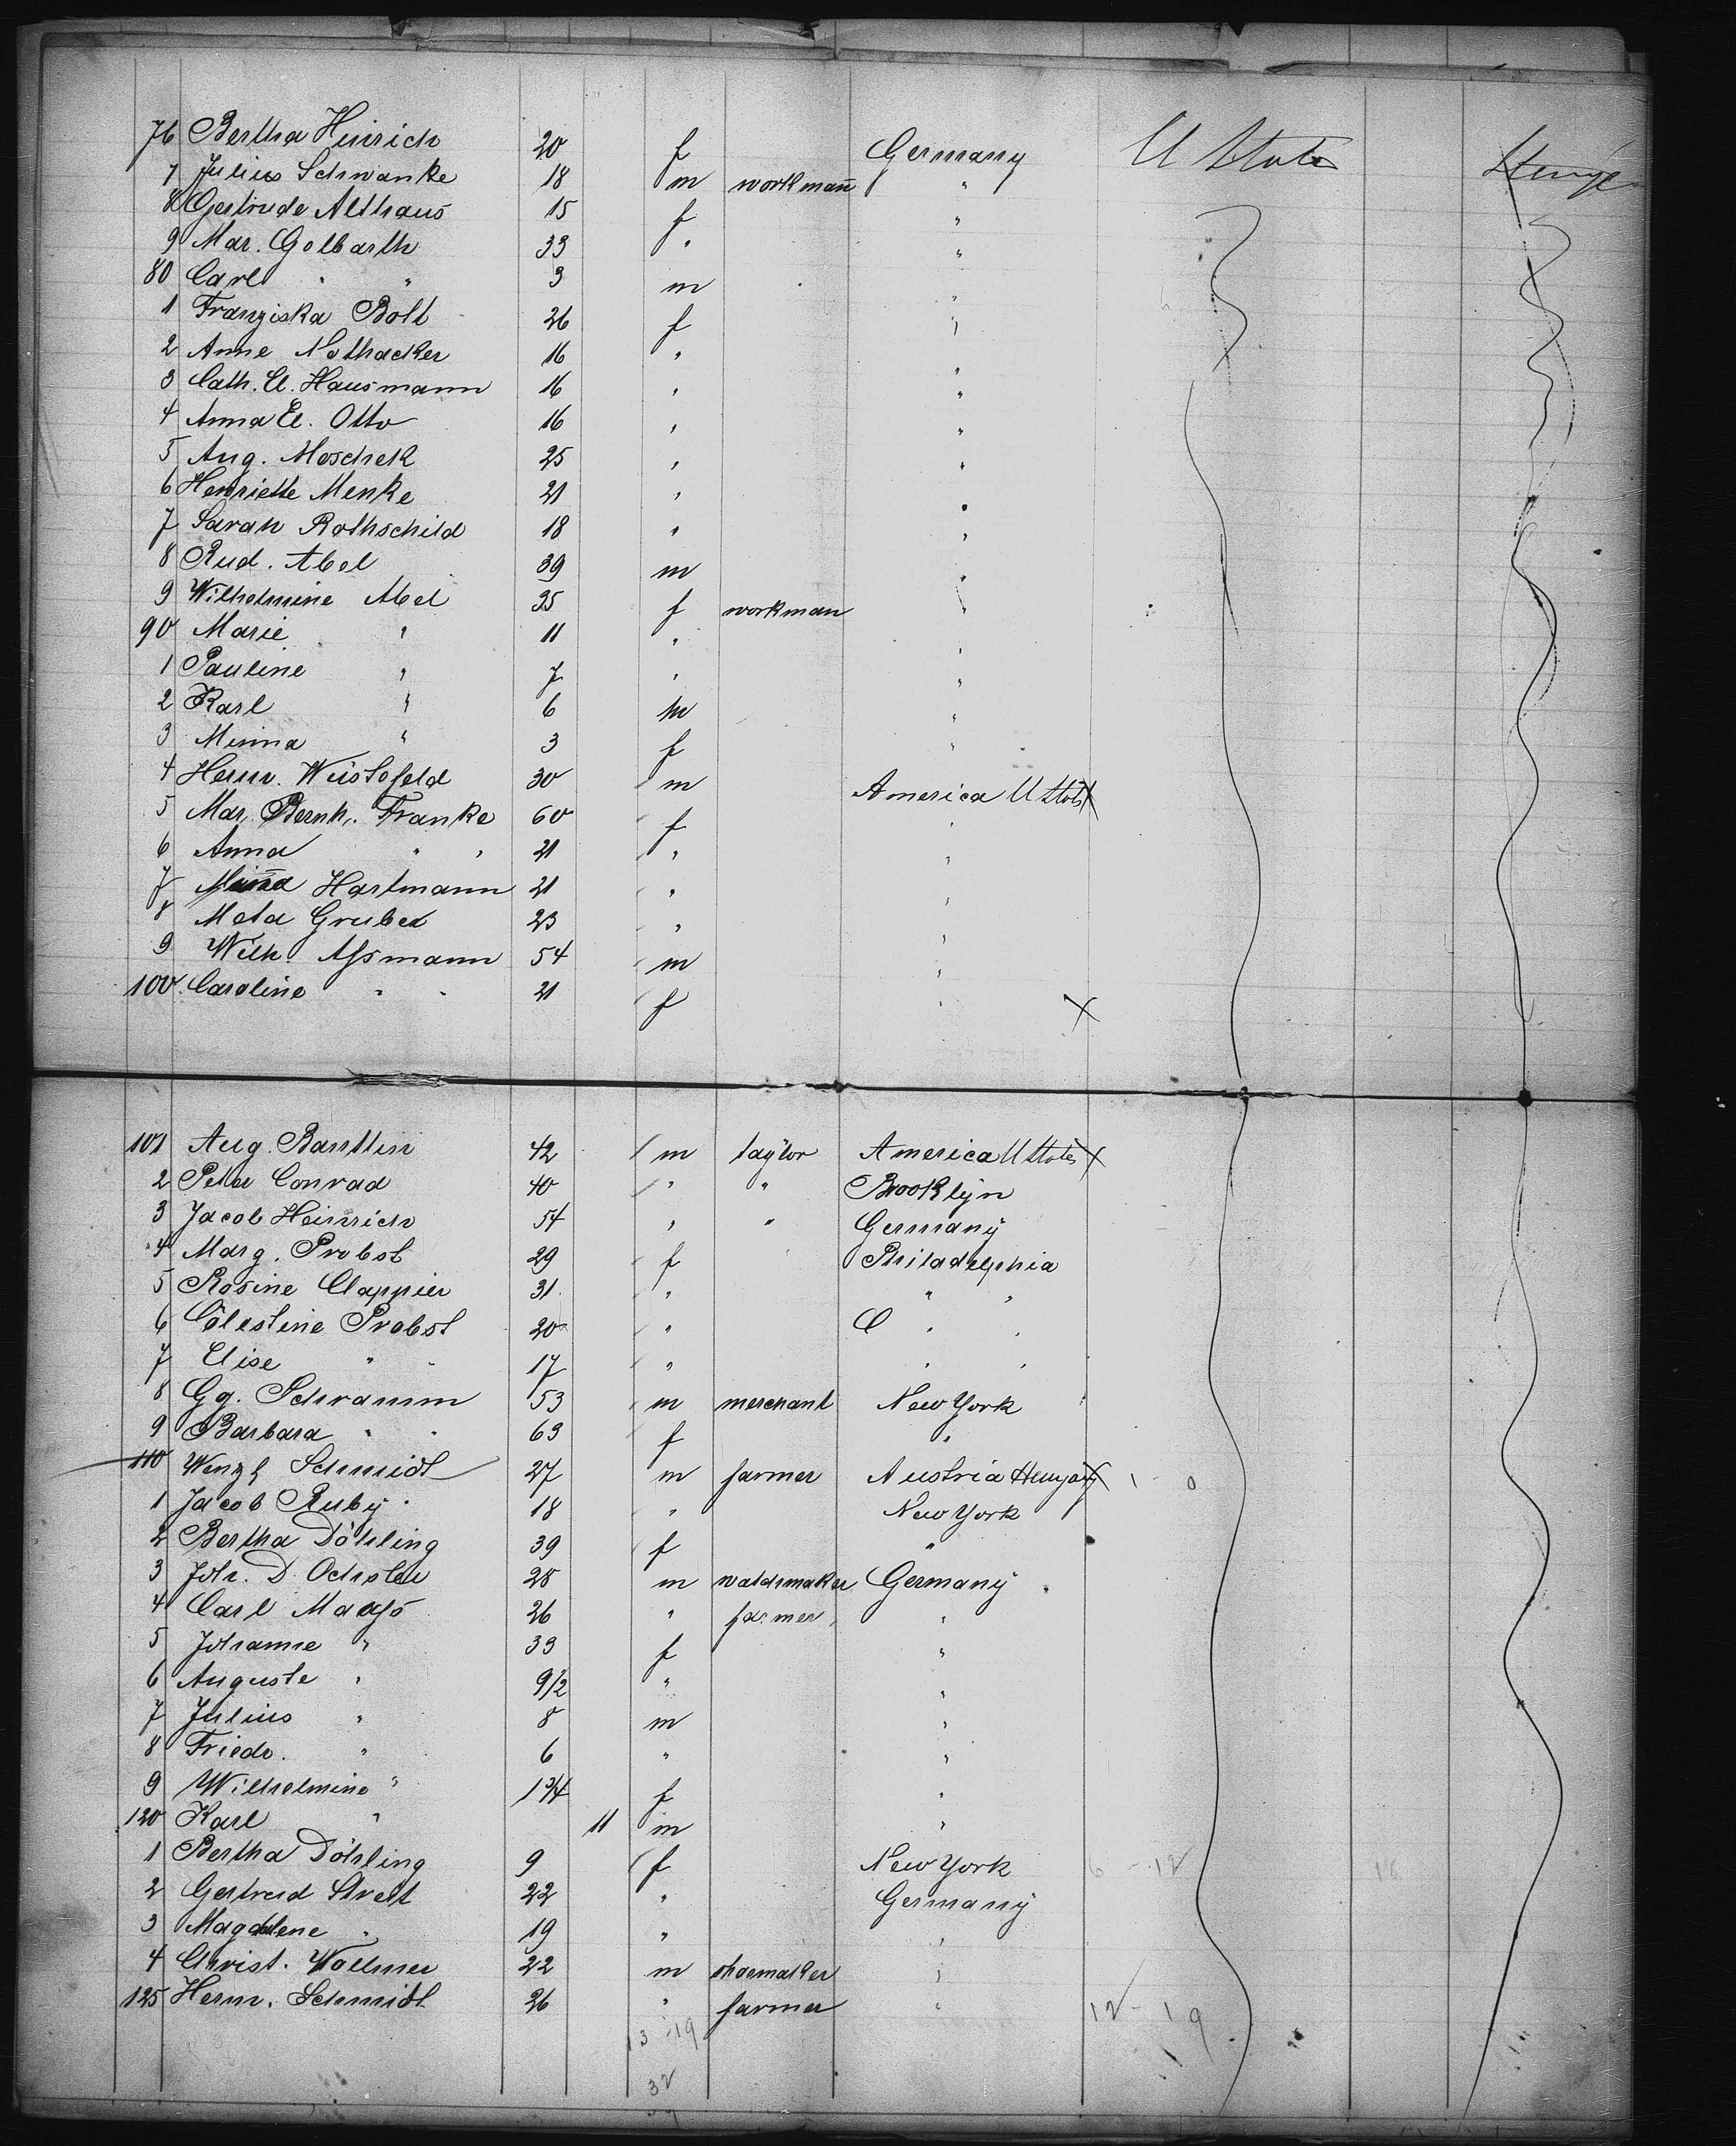 76 Bertha Heinrich 20 f Germany U States Steerage
7 Julius Schwanke 18 m workmann "
8 Gertrude Althaus 15 f "
9 Mar. Golbarth 33 " "
80 Carl " " 3 m "
1 Franziska Bolt 26 f "
2 Anne Nothacker 16 " "
3 Cath. El. Hausmann 16 " "
4 Anna El. Otto 16 " "
5 Aug. Moschek 25 " "
6 Henriette Menke 21 " "
7 Sarah Rothschild 18 " "
8 Rud. Abel 39 m "
9 Wilhelmine Abel 35 f workman "
90 Marie " 11 " "
1 Pauline " 7 " "
2 Karl " 6 m "
3 Minna " 3 f "
4 Herm. Wüstefeld 30 m America U States X
5 Mar. Bernh. Franke 60 f "
6 Anna " " 21 " "
7 Minna Hartmann 21 " "
8 Meta Gruber 23 " "
9 Wilh. Assmann 54 m "
100 Caroline " " 21 f " X
101 Aug. Banttin 42 m taylor America U States X
2 Peter Conrad 40 " " Brooklyn
3 Jacob Heinrich 54 " " Germany
4 Marg. Probst 29 f Philadelphia
5 Rosine Clappier 31 " " "
6 Cölestine Probst 20 " " "
7 Elise " " 17 " " "
8 Gg. Schramm 53 m merchant New York
9 Barbara " " 63 f "
110 Wenzl Schmidt 27 m farmer Austria Hungary X
1 Jacob Ruby 18 " New York
2 Bertha Döhling 39 f "
3 Joh. D. Ochsler 28 m watchmaker Germany
4 Carl Maass 26 " farmer "
5 Johanne " 33 f "
6 Auguste " 9 1/2 " "
7 Julius " 8 m "
8 Friedr. " 6 " "
9 Wilhelmine " 1 3/4 f "
120 Karl " 11 m "
1 Bertha Döhling 9 f New York 6 - 12 18
2 Gertrud Streit 22 " Germany
3 Magdalene " 19 " "
4 Christ. Vollmer 22 m shoemaker "
125 Herm. Schmidt 26 " farmer " 12 - 19
13 - 19
32